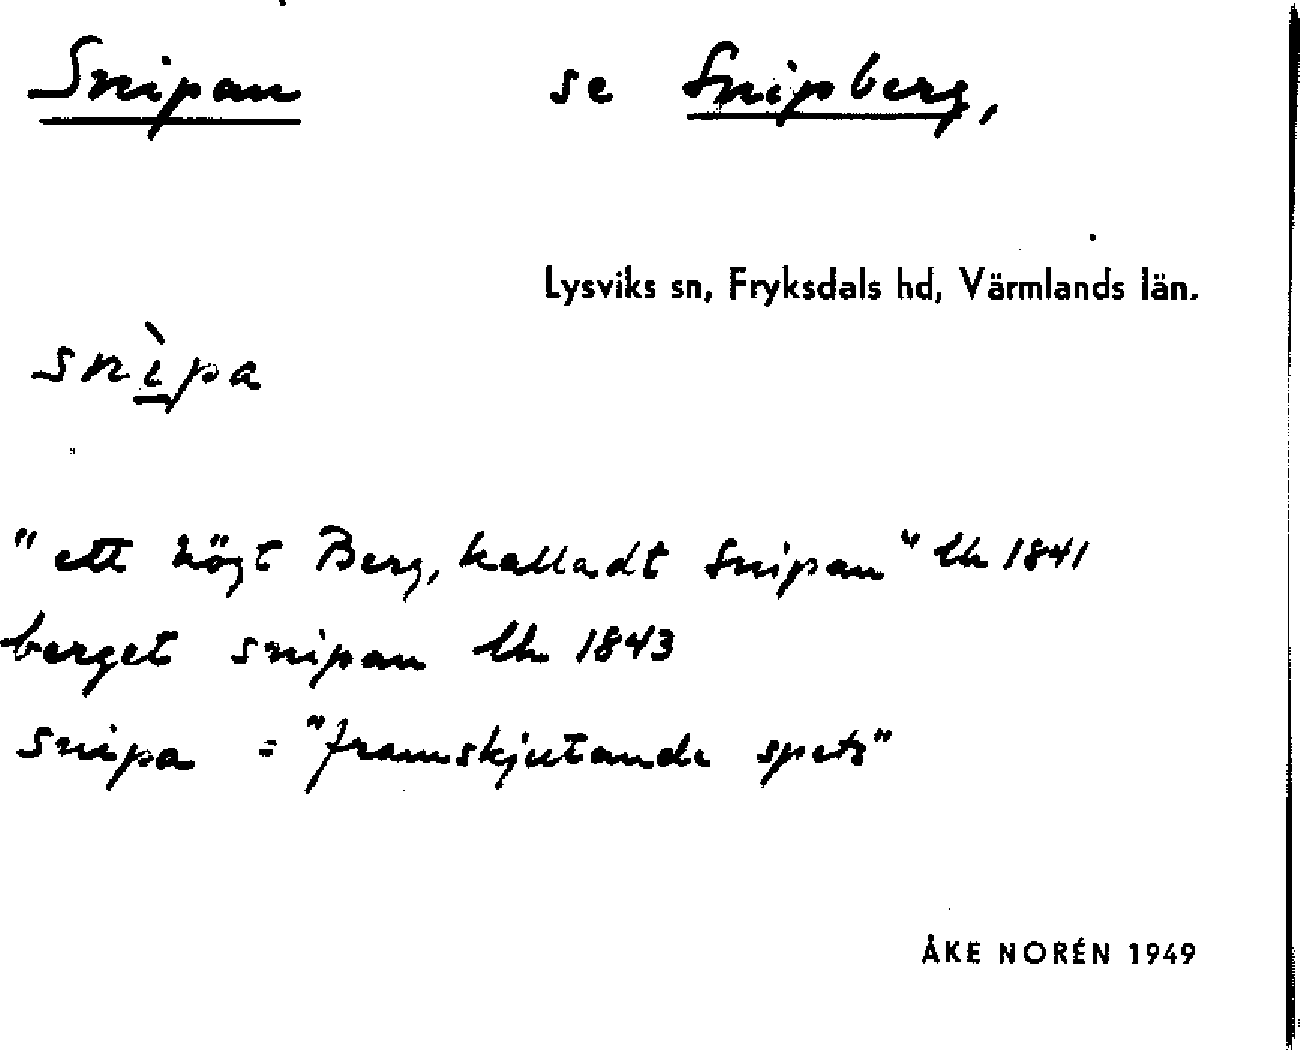 Snipan se Snipberg,
Lysviks sn, Fryksdals hd, Värmlands län.
snìpa
"ett högt Berg, kalladt Snipan" lh 1841
berget snipan lh 1843
snipa = "framskjutande spets"
ÅKE NORÉN 1949